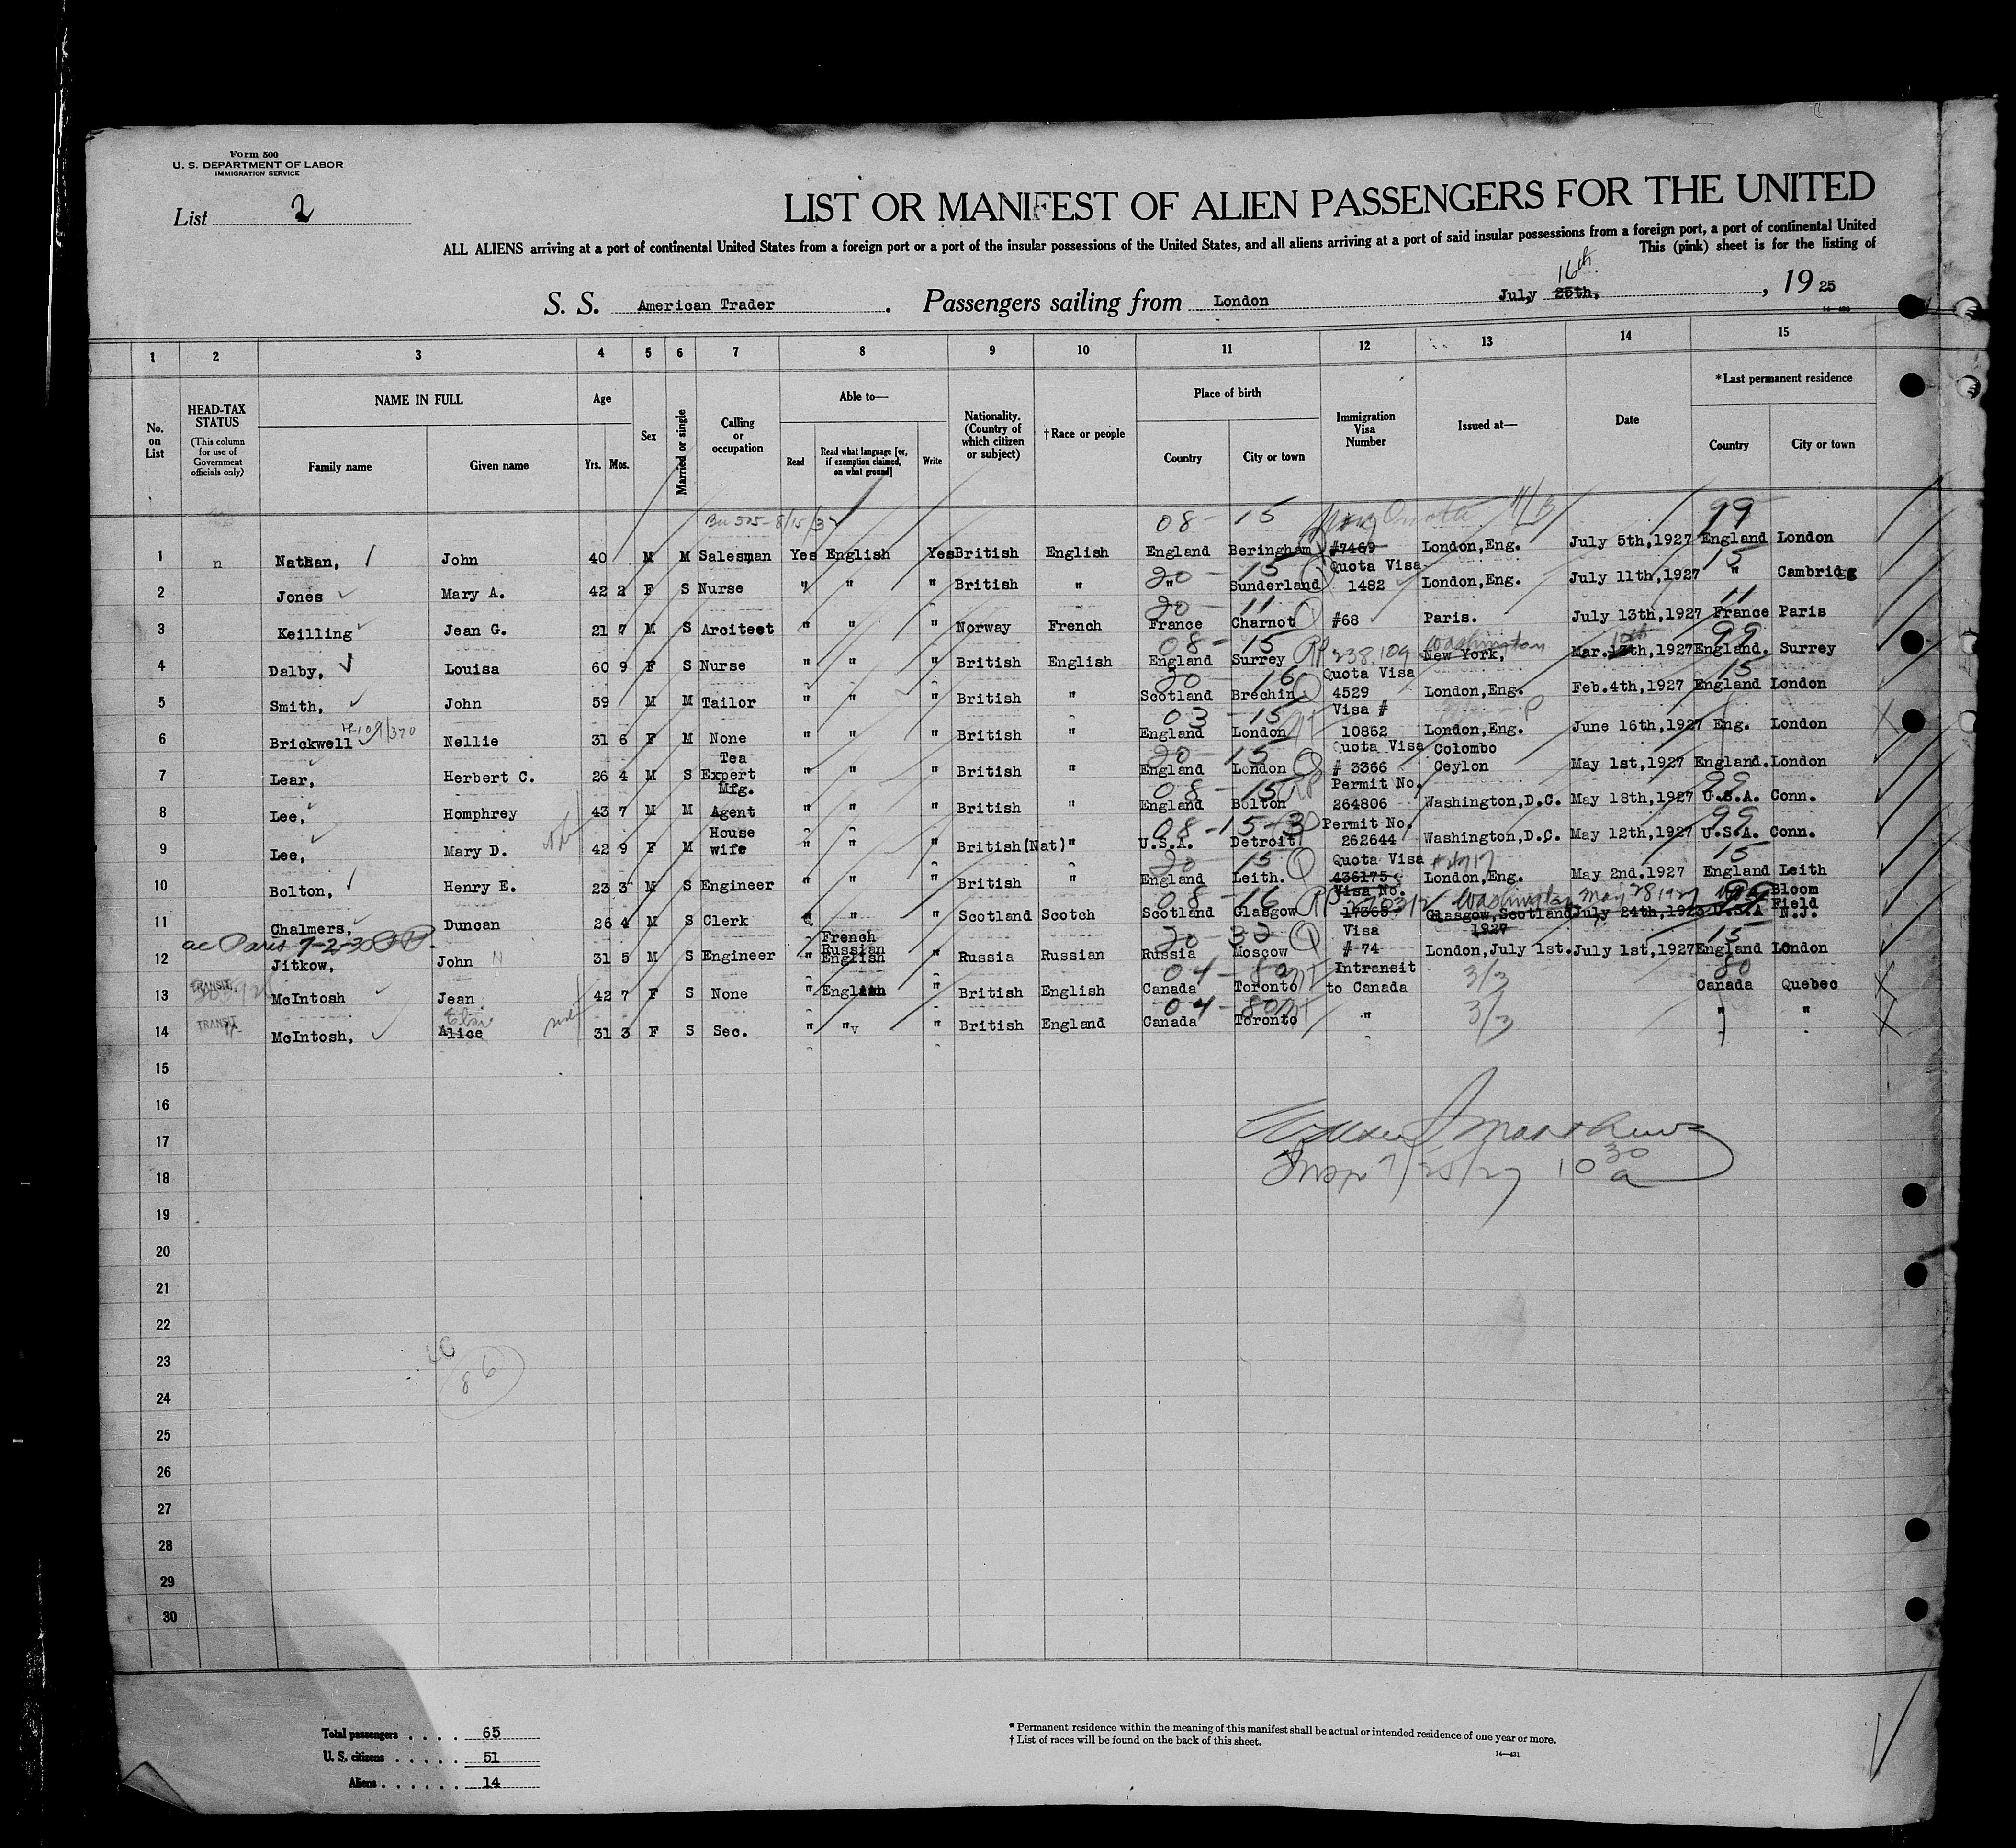 Form 500
U. S. DEPARTMENT OF LABOR
IMMIGRATION SERVICE
List 2
LIST OR MANIFEST OF ALIEN PASSENGERS FOR THE UNITED
ALL ALIENS arriving at a port of continental United States from a foreign port or a port of the insular possessions of the United States, and all aliens arriving at a port of said insular possessions from a foreign port, a port of continental United
This (pink) sheet is for the listing of
16th
S. S. American Trader. Passengers sailing from London July, 25th, , 19 25
1 2 3 4 5 6 7 8 9 10 11 12 13 14 15
No. on List
HEAD-TAX STATUS
(This column for use of Government officials only)
NAME IN FULL
Family name Given name
Age
Yrs. Mos.
Sex
Married or single
Calling or occupation
Able to—
Read
Read what language [or, if exemption claimed, on what ground]
Write
Nationality. (Country of which citizen or subject)
†Race or people
Place of birth
Country City or town
Immigration Visa Number
Issued at—
Date
*Last permanent residence
Country City or town
08 - 15 Non Quota 99
1 n Nathan, John 40 M M Salesman Yes English Yes British English England Beringham #7469 London,Eng. July 5th,1927 England London
20 - 15 Q Quota Visa 15
2 Jones Mary A. 42 2 F S Nurse " " " British " " Sunderland 1482 London,Eng. July 11th,1927 " Cambridg
20 - 11 Q 11
3 Keilling Jean G. 21 7 M S Arcitect " " " Norway French France Charnot #68 Paris. July 13th,1927 France Paris
08 - 15 RP 238109 Washington 99
4 Dalby, Louisa 60 9 F S Nurse " " " British English England Surrey New York, Mar. 1927 England. Surrey
20 - 16 Q Quota Visa 15
5 Smith, John 59 M M Tailor " " " British " Scotland Brechin 4529 London,Eng. Feb.4th,1927 England London
03 - 15 Visa #
6 Brickwell Nellie 31 6 F M None " " " British " England London 10862 London,Eng. June 16th,1927 Eng. London
20 - 15 Q Quota Visa Colombo
7 Lear, Herbert C. 26 4 M S Tea Expert " " " British " England London # 3366 Ceylon May 1st,1927 England. London
08 - 15 RP Permit No. 99
8 Lee, Homphrey 43 7 M M Mfg. Agent " " " British " England Bolton 264806 Washington,D.C. May 18th,1927 U.S.A. Conn.
08 - 15 - 3 Permit No. 99
9 Lee, Mary D. 42 9 F M House wife " " " British(Nat) " U.S.A. Detroit 262644 Washington,D.C. May 12th,1927 U.S.A. Conn.
20 15 Q Quota Visa # 4717 15
10 Bolton, Henry E. 23 3 M S Engineer " " " British " England Leith. 436175 London,Eng. May 2nd.1927 England Leith
08 - 16 RP Visa No. Washington May 28 1927 99
11 Chalmers, Duncan 26 4 M S Clerk " " " Scotland Scotch Scotland Glasgow 17365 Glasgow,Scotland July 24th,1925 U.S.A Bloom Field N.J.
1927
ac Paris 7-2-30
20 - 32 Q Visa 15
12 Jitkow, John N 31 5 M S Engineer " French Russian English " Russia Russian Russia Moscow # 74 London,July 1st. July 1st,1927 England London
04 - 80 Intransit 3/3 80
13 TRANSIT McIntosh Jean 42 7 F S None " English " British English Canada Toronto to Canada Canada Quebec
04 - 80
14 TRANSIT McIntosh, Alice Elsie 31 3 F S Sec. " " " British England Canada Toronto " 3/3 " "
15
16
17
18
Insp 7/25/27 10 30 a
19
20
21
22
23
24
25
26
27
28
29
30
86
Total passengers . . . . 65
U. S. citizens . . . . . 51
Aliens . . . . . . 14
* Permanent residence within the meaning of this manifest shall be actual or intended residence of one year or more.
† List of races will be found on the back of this sheet.
14—431